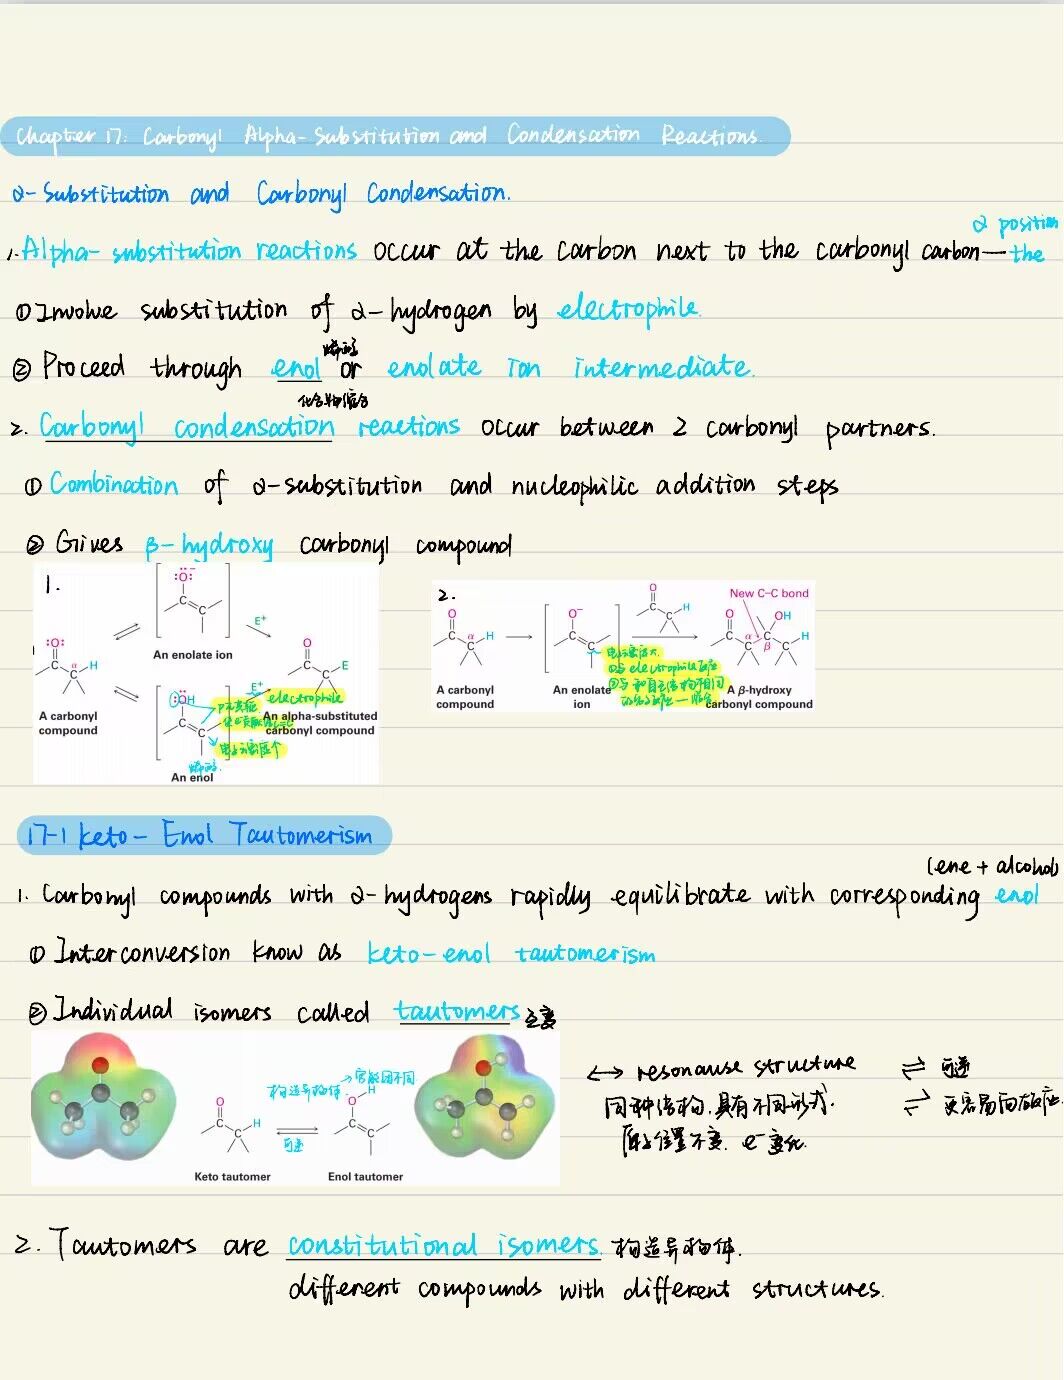 Chapter 17: Carbonyl Alpha-Substitution and Condensation Reactions.
α-Substitution and Carbonyl Condensation.
α position
1. Alpha-substitution reactions occur at the carbon next to the carbonyl carbon—the
① Involve substitution of α-hydrogen by electrophile.
烯醇
② Proceed through enol or enolate ion intermediate.
化合物缩合
2. Carbonyl condensation reactions occur between 2 carbonyl partners.
① Combination of α-substitution and nucleophilic addition steps
② Gives β-hydroxy carbonyl compound
1.
:O:⁻
C C
An enolate ion
E⁺
:O:
C α H
C
A carbonyl
compound
:OH
C C
烯醇
An enol
E⁺
electrophile
O
C E
C
An alpha-substituted
carbonyl compound
2.
O
C α H
C
A carbonyl
compound
O⁻
C C
An enolate
ion
O
C H
C
①与 electrophile 反应
New C–C bond
O OH
C α C H
C β C
A β-hydroxy
carbonyl compound
17-1 keto-Enol Tautomerism
(ene + alcohol)
1. Carbonyl compounds with α-hydrogens rapidly equilibrate with corresponding enol
① Interconversion know as keto-enol tautomerism
② Individual isomers called tautomers 互变
构造异构体 → 官能团不同
O
C H
C
可逆
O H
C C
Keto tautomer
Enol tautomer
↔ resonause structure
同种结构,具有不同形式.
原子位置不变, e⁻变化
⇌ 可逆
⇌ 更容易向反应
2. Tautomers are constitutional isomers. 构造异构体.
different compounds with different structures.